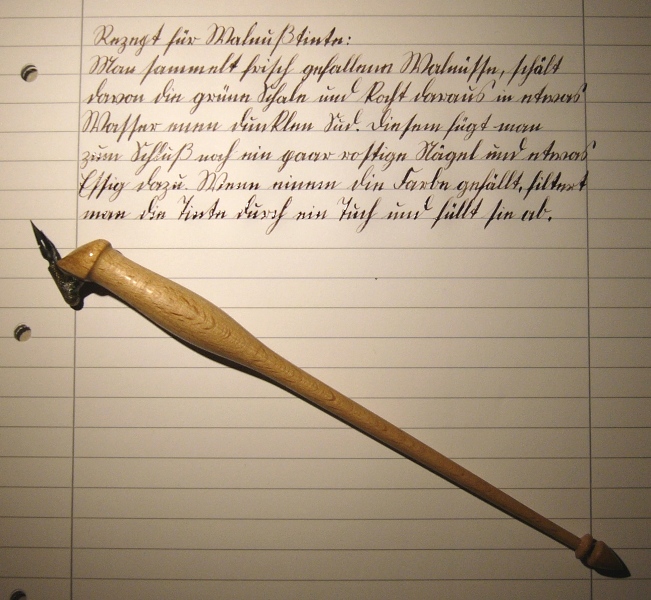 Rezept für Walnußtinte:
Man sammelt frisch gefallene Walnüsse, schält
davon die grüne Schale und kocht daraus in etwas
Wasser einen dunklen Sud. Diesem fügt man
zum Schluß noch ein paar rostige Nägel und etwas
Essig dazu. Wenn einem die Farbe gefällt, filtert
man die Tinte durch ein Tuch und füllt sie ab.